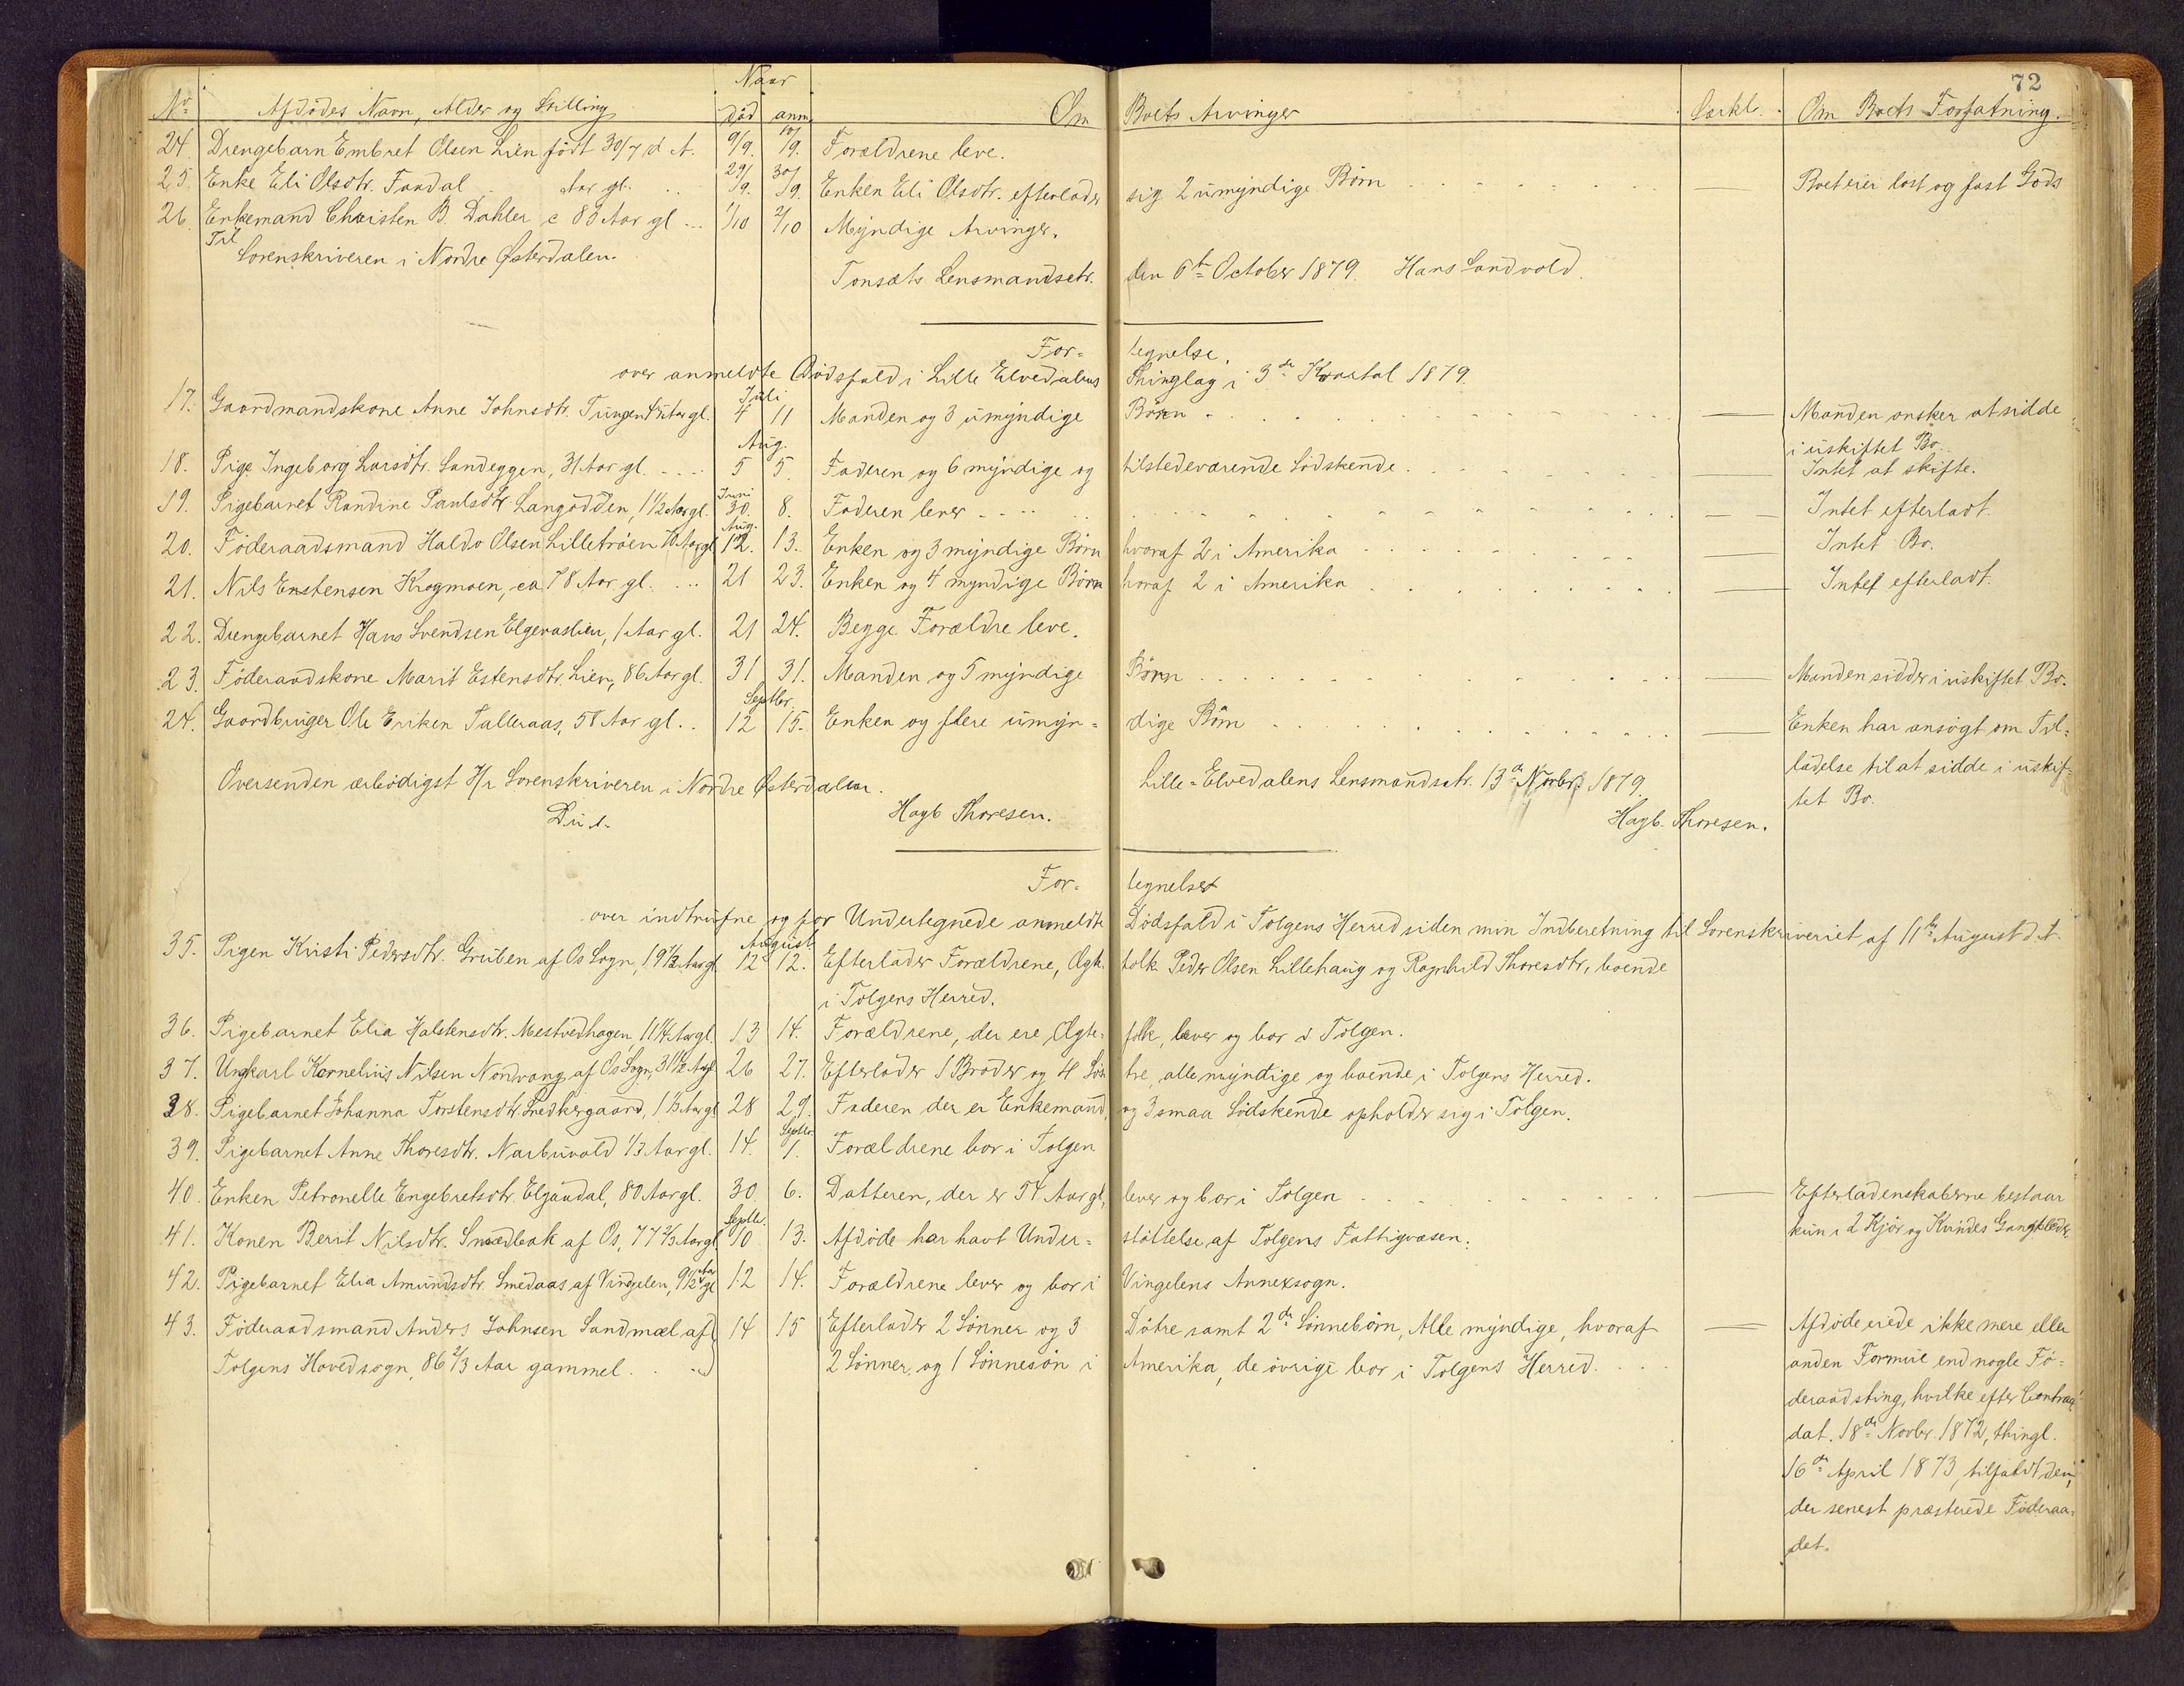 72
Naar
No Afdødes Navn, Alder og Stilling Død anm. Om Boets Arvinger Særkl. Om Boets Forfatning.
24. Drengebarn Embret Olsen Lien født 30/7 d. A. 9/9. 10/9. Forældrene leve.
25. Enke Eli Olsdtr. Fandal . Aar gl. .. 29/9. 30/9. Enken Eli Olsdtr. efterlader sig 2 umyndige Børn — Boet eier løst og fast Gods
26. Enkemand Christen B. Dahler c 83 Aar gl ... 1/10 2/10 Myndige Arvinger.
Til
Sorenskriveren i Nordre Østerdalen.
Tonsæts Lensmandsetr. den 6te October 1879. Hans Sandvold.
For- tegnelse.
over anmeldte Dødsfald i Lille Elvedalens Thinglag i 3de Kvartal 1879.
Juli
17. Gaardmandskone Anne Johnsdtr. Tungen Aar gl. 4 11 Manden og 3 umyndige Børn — Manden ønsker at sidde
i uskiftet Bo.
Aug.
18. Pige Ingeborg Larsdtr. Sandeggen, 31 Aar gl. 5 5. Faderen og 6 myndige og tilstedeværende Sødskende. — Intet at skifte.
Juni
19. Pigebarnet Randine Paulsdtr. Langødden, 1 1/2 Aar gl. 30. 8. Faderen lever — Intet efterladt.
Aug.
20. Føderaadsmand Haldo Olsen Lilletrøen 70 Aar gl 12. 13. Enken og 3 myndige Børn hvoraf 2 i Amerika — Intet Bo.
21. Nils Enstensen Krogmoen, ca 78 Aar gl. ... 21 23. Enken og 4 myndige Børn hvoraf 2 i Amerika — Intet efterladt.
22. Drengebarnet Hans Svendsen Elgevaslien, 1 Aar gl. 21 24. Begge Forældre leve.
23. Føderaadskone Marit Estensdtr. Lien, 86 Aar gl. 31 31. Manden og 5 myndige Børn — Manden sidder i uskiftet Bo.
Septbr.
24. Gaardbruger Ole Eriken Talleraas, 58 Aar gl. 12 15. Enken og flere umyn- dige Børn — Enken har ansøgt om Til-
ladelse til at sidde i uskif-
tet Bo.
Oversendes ærbødigst Hr Sorenskriveren i Nordre Østerdalen. Lille-Elvedalens Lensmandsetr. 13de Novbr. 1879.
D. u. s. Hagb Thoresen. Hagb. Thoresen.
For- tegnelse
over indtrufne og for Undertegnede anmeldte Dødsfald i Tolgens Herred siden min Indberetning til Sorenskriveriet af 11te August d. A.
August
35. Pigen Kristi Pedersdtr. Gruben af Os Sogn, 19 1/2 Aar gl. 12 12. Efterlader Forældrene, Ægte- folk Peder Olsen Lillehaug og Ragnhild Thoresdtr, boende
i Tolgens Herred.
36. Pigebarnet Elia Halstensdtr. Mestvedhagen, 1 1/4 Aar gl. 13 14. Forældrene, der ere Ægte- folk, lever og bor i Tolgen.
37. Ungkarl Kornelius Nilsen Nordvang af Os Sogn, 31 1/2 Aar gl 26 27. Efterlader 1 Broder og 4 Søs tre, alle myndige og boende i Tolgens Herred.
38. Pigebarnet Johanna Torstensdtr. Snedkergaard, 1 1/3 Aar gl 28 29. Faderen der er Enkemand, og 3 smaa Sødskende opholder sig i Tolgen.
Septbr.
39. Pigebarnet Anne Thoresdtr. Narbuvold 1/3 Aar gl. 14. 1. Forældrene bor i Tolgen
40. Enken Petronelle Engebretsdtr. Elgaadal, 80 Aar gl. 30. 6. Datteren, der er 54 Aar gl, lever og bor i Tolgen — Efterladenskaberne bestaar
Septbr.
41. Konen Berit Nilsdtr. Smedbak af Os, 77 2/3 Aar gl 10 13. Afdøde har havt Under- støttelse af Tolgens Fattigvæsen. kun i 2 Kjør og Kvindes Gangklæder.
42. Pigebarnet Elia Amundsdtr. Smedaas af Vingelen, 9 1/2 Aar gl 12 14. Forældrene lever og bor i Vingelens Annexsogn.
43. Føderaadsmand Anders Johnsen Sandmæl af 14 15 Efterlader 2 Sønner og 3 Døtre samt 2de Sønnebørn, Alle myndige, hvoraf — Afdøde eiede ikke mere eller
Tolgens Hovedsogn, 86 2/3 Aar gammel. 2 Sønner og 1 Sønnesøn i Amerika, de øvrige bor i Tolgens Herred. anden Formue end nogle Fø-
deraadsting, hvilke efter Contract
dat. 18de Novbr. 1872, thingl.
16de April 1873, tilfaldt dem,
der senest præsterede Føderaa-
det.